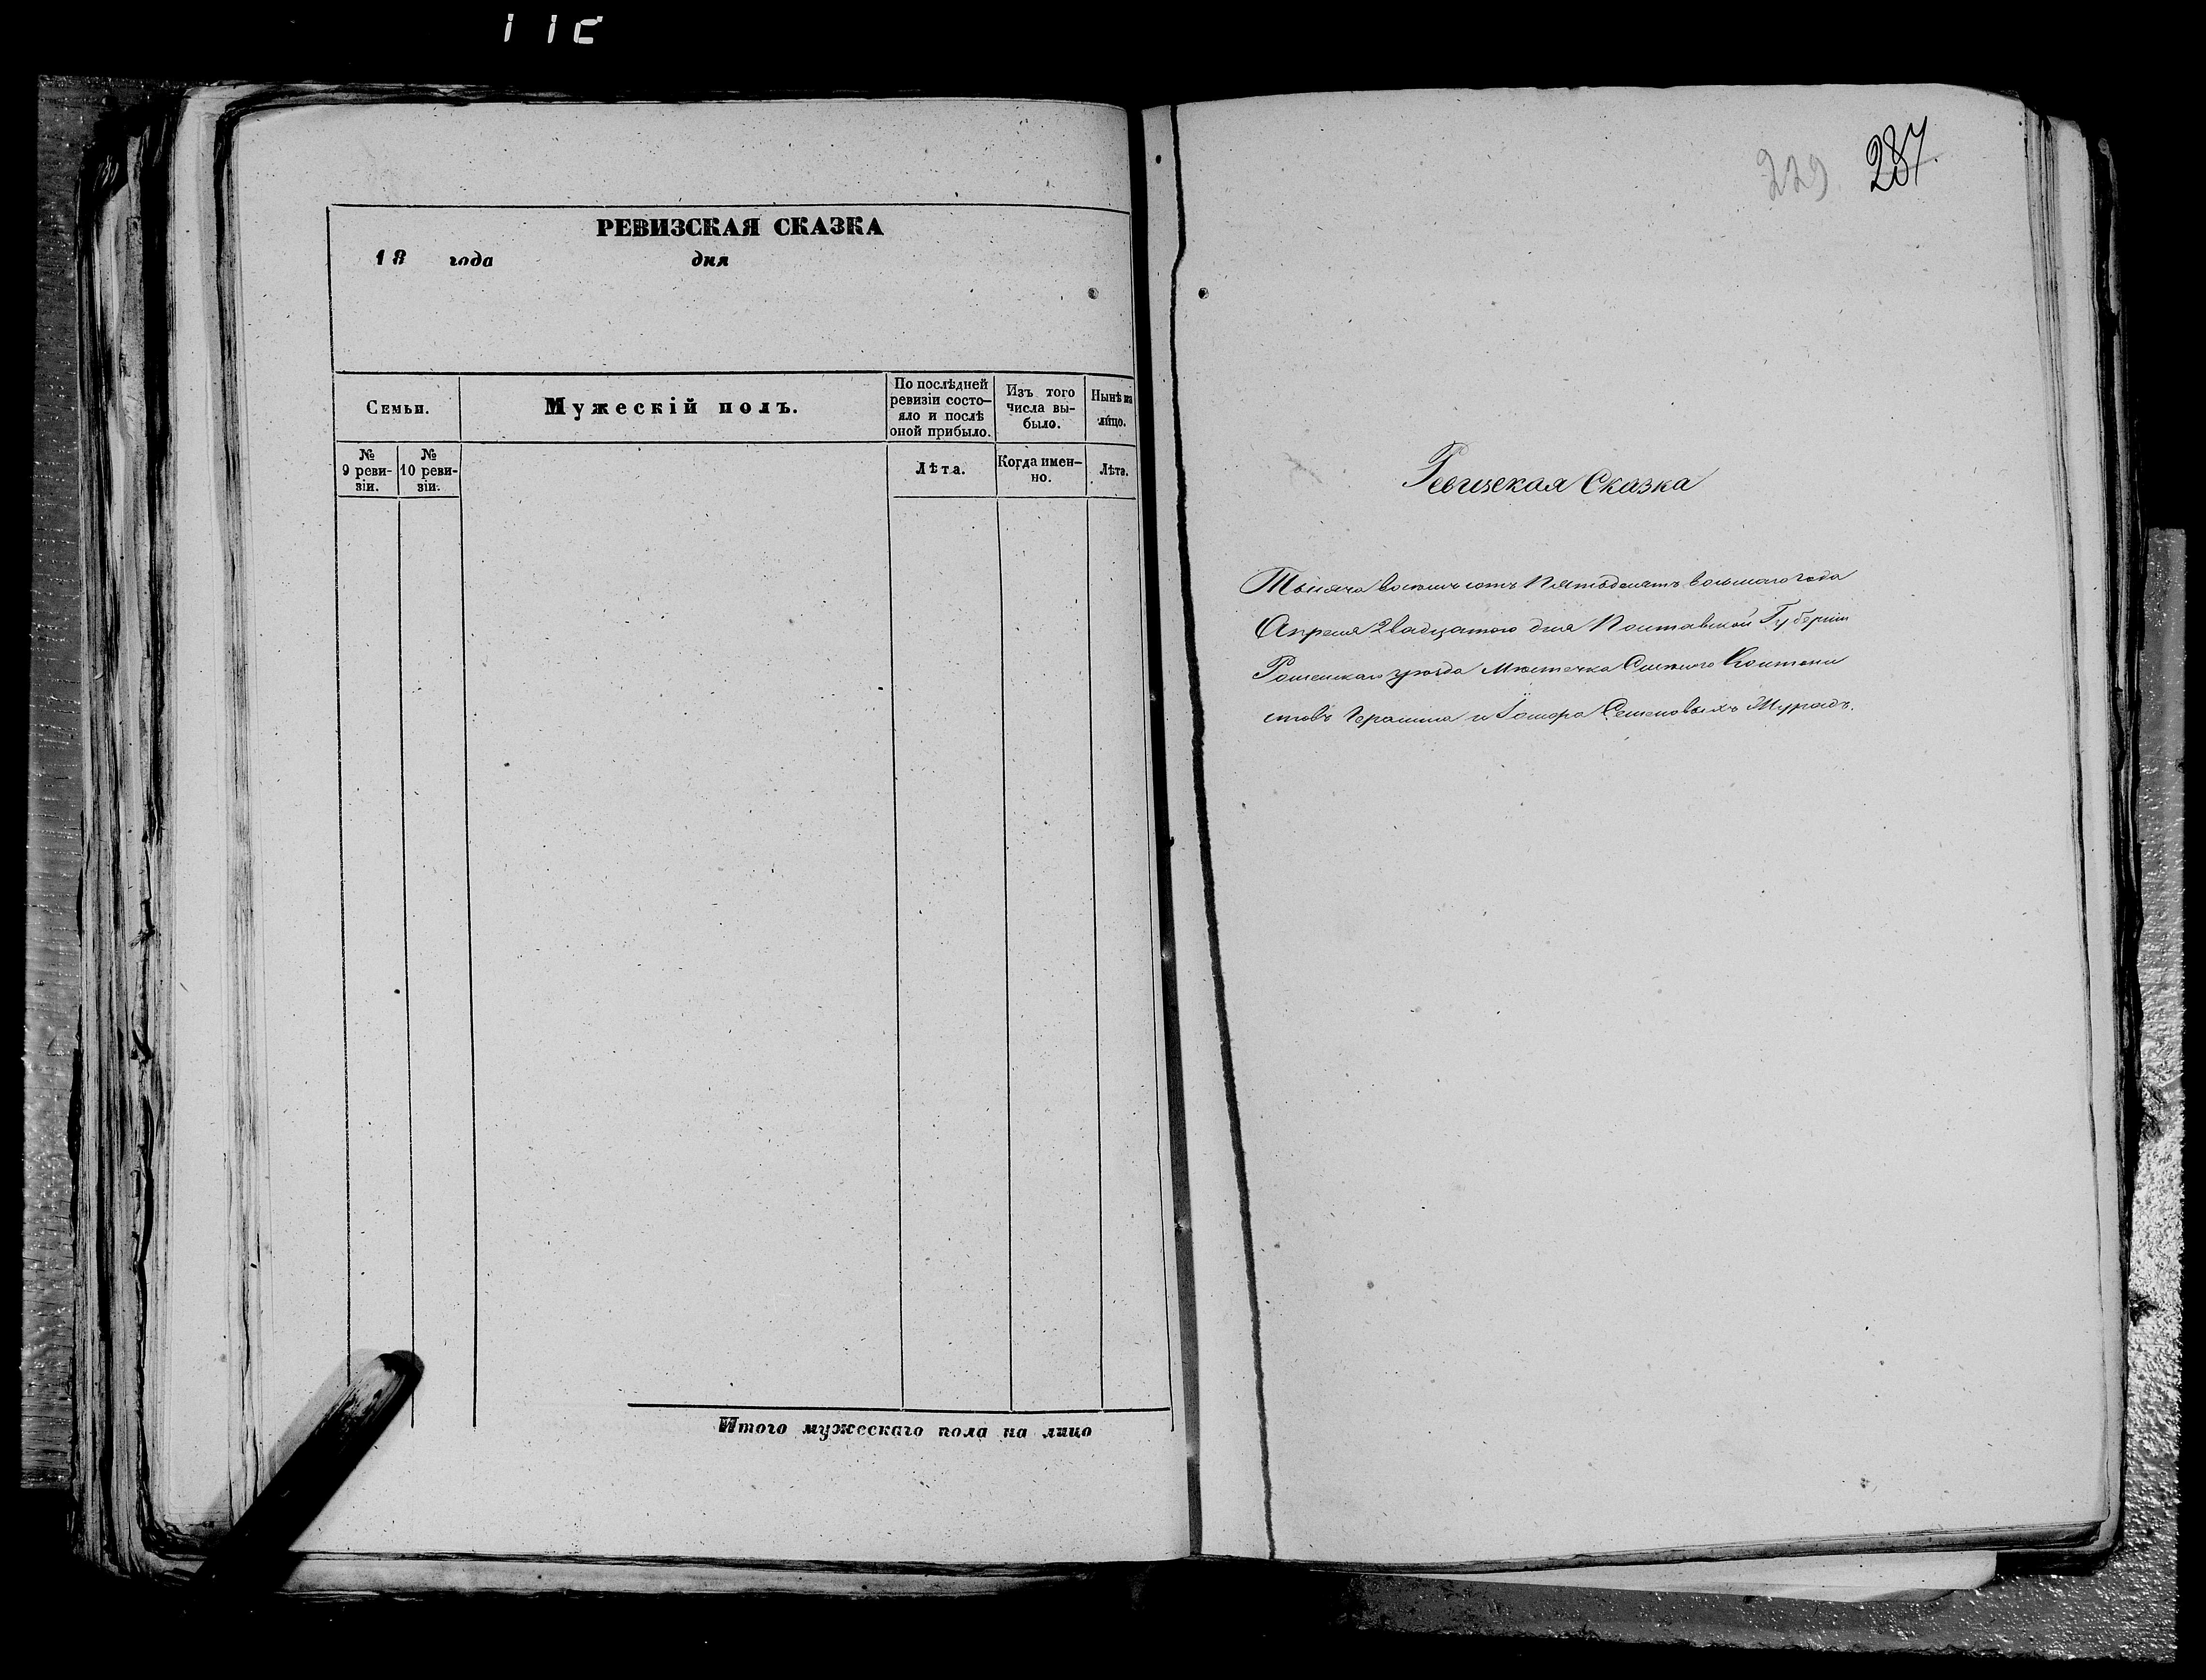 РЕВИЗСКАЯ СКАЗКА
18 года дня
Семьи.
Мужескій полъ.
По послѣдней
ревизіи состо-
яло и послѣ
оной прибыло.
Изъ того
числа вы-
было.
Нынѣ на
лицо.
№
9 реви-
зіи.
№
10 реви-
зіи.
Лѣта.
Когда имен-
но.
Лѣта.
Итого мужескаго пола на лицо
229 287
Ревизская Сказка
Тысяча восемь сотъ Пятьдесятъ восьмаго года
Апреля Двадцатого дня Полтавской Губерніи
Роменскаго уезда Местечка Смелаго
и Семеновыхъ